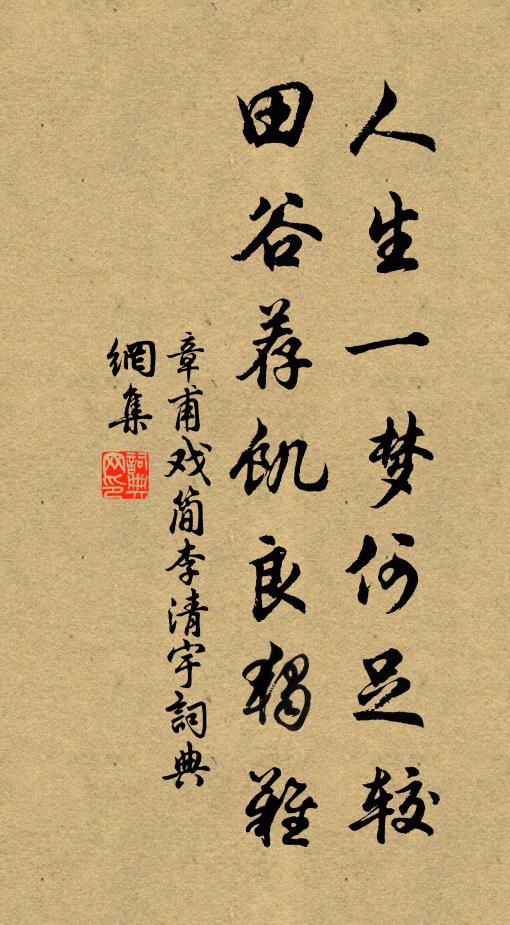 人生一梦何足较
田谷荐饥良独难
章甫戏简李清宇詞典
網集
詞典
网印